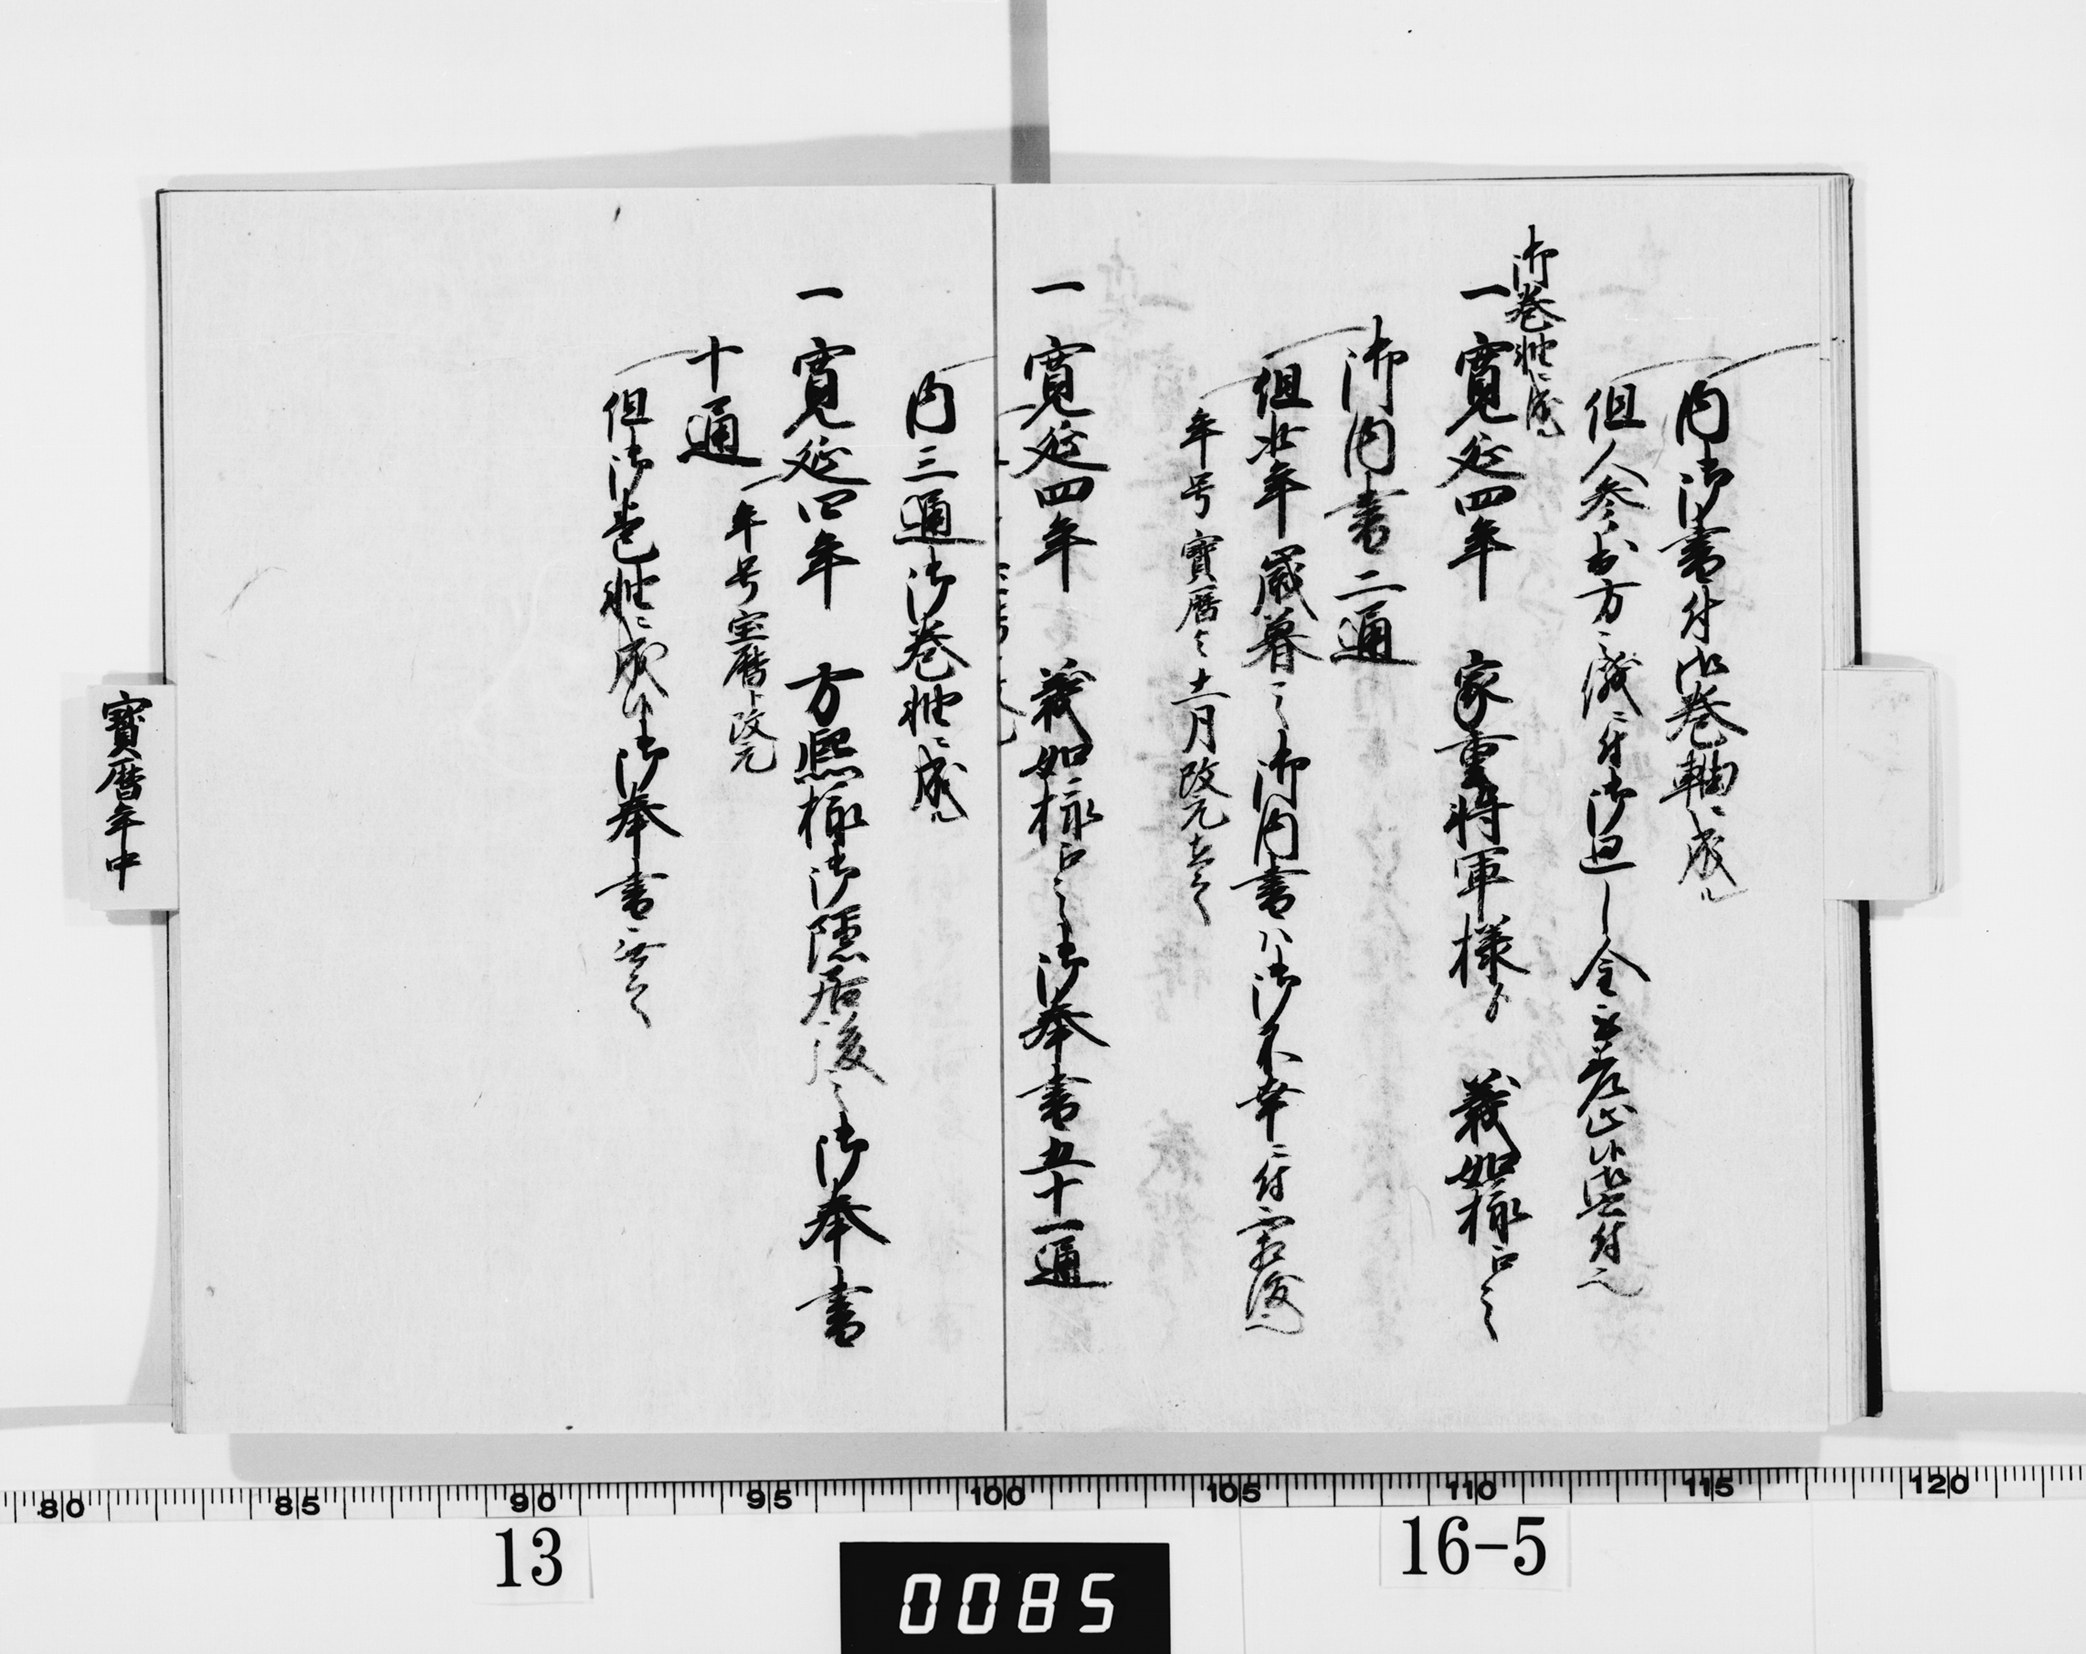 内御書付御巻軸ニ成ル
但人参出方之儀ニ付御返し
御巻軸ニ成ル
一寛延四年 家重将軍様ゟ 義如様江之
御内書二通
但此年歳暮之御内書ハ御不幸ニ付
年号寶暦と十一月改元有之
一寛延四年 義如様江之御奉書五十一通
内三通御巻軸ニ成ル
一寛延四年 方熙様御隠居後之御奉書
十通
年号宝暦ト改元
但御巻軸ニ成候御奉書ニ無之
寶暦年中
80 85 90 95 100 105 110 115 120
13
0085
16-5